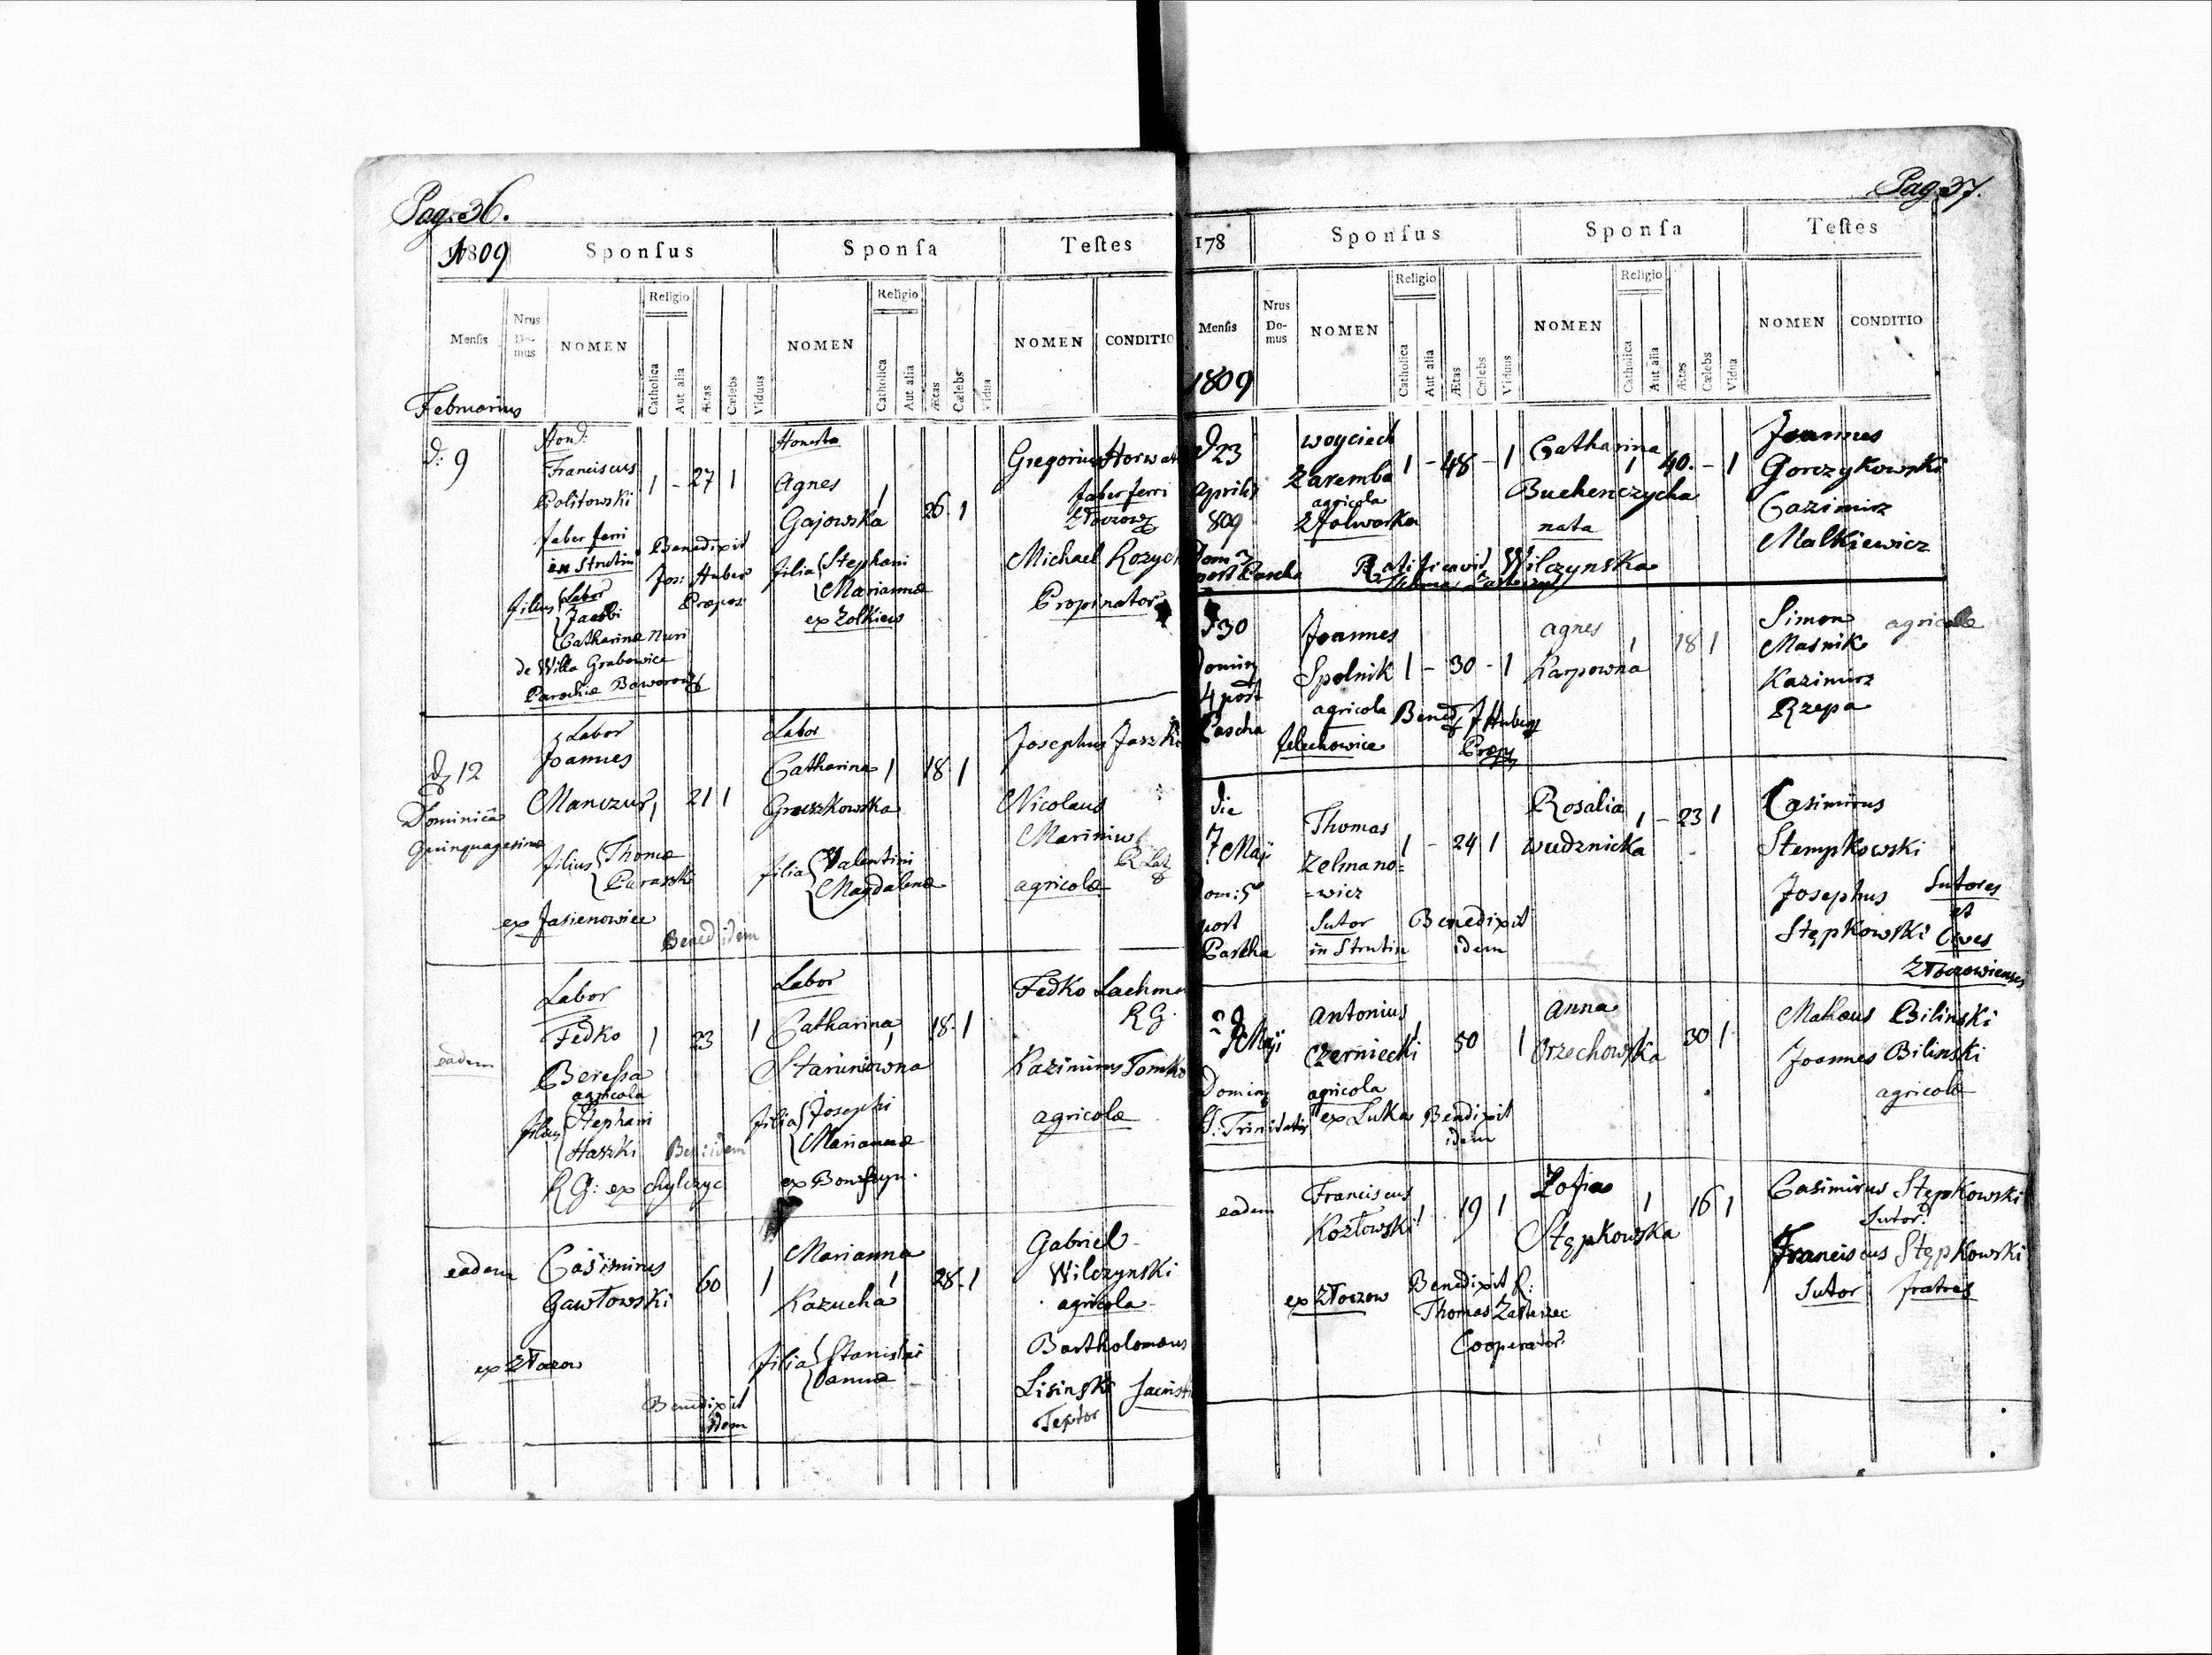 Pag. 36.
1809 Sponſus Sponſa Teſtes
Menſis Nrus Do- mus NOMEN Religio Catholica Aut alia Ætas Cœlebs Viduus NOMEN Religio Catholica Aut alia Ætas Cœlebs Vidua NOMEN CONDITIO
Februarius
d: 9
Franciscus
Politowski 1 - 27 1
faber ferri
in Strutin
Benedixit
Jos: Huber
Præpos:
filius Labor
Jacobi
Catharinæ Nuri
de Willa Grabowice
Parochiæ Baworow
Honesta
Agnes 1
Gajowska 26. 1
filia Stephani
Mariannæ
ex Zolkiew
Gregorius Horwat
faber ferri
Michael Rozyc
Propinator
12
Dominica
Quinquagesimæ
Labor
Joannes
Manczur, 21 1
filius Thomæ
Paraszki
ex Jasienowice
Bened idem
Labor
Catharina 1 18. 1
Gruszkowska
filia Valentini
Magdalenæ
Josephus Jaszki
Nicolaus
Mariniw
agricolæ
eadem
Labor
Fedko 1 23 1
Beressa
agricola
filius Stephani
Haszki
Ben: idem
R G: ex Chylczyc
Labor
Catharina, 18. 1
Starunowna
filia Josephi
Mariannæ
Fedko Lachma
R G.
Kazimirus Tomko
agricolæ
eadem
Casimirus
Gawłowski 60 1
ex Złoczow
Benedixit
idem
Marianna
Kazucha 1 28. 1
filia Stanislai
Annæ
Gabriel
Wilczynski
agricola
Bartholomæus
Lisinski
Textor
Pag. 37.
178 Sponſus Sponſa Teſtes
Menſis Nrus Do- mus NOMEN Religio Catholica Aut alia Ætas Cœlebs Viduus NOMEN Religio Catholica Aut alia Ætas Cœlebs Vidua NOMEN CONDITIO
1809
d 23
Aprilis
809
Dom 3
post Pascha
Woyciech
Zaremba 1 - 48 - 1
agricola
Z folwarku
Ratificavit
Catharina 1 40. - 1
Buchenczycha
nata
Wilczynska
Joannes
Gorczykowski
Cazimirz
Malkiewicz
d 30
Domin
4 post
Pascha
Joannes
Spolnik 1 - 30 - 1
agricola
Jelechowice
Bened J Huber
Præp
Agnes 1 18 1
Karpowna
Simon
Masnik
agricolæ
Kazimirz
Rzepa
die
7 Maji
Dom: 5
post
Pascha
Thomas
Zelmano=
=wicz 1 - 24 1
Sutor
in Strutin
Benedixit
idem
Rosalia 1 - 23 1
Wudznicka
Casimirus
Stempkowski
Josephus
Stępkowski
Sutores
et
Cives
Złoczowienses
Maji
Domin
S: Trinitatis
Antonius
Czerniecki 1 50 1
agricola
ex Luka
Bendixit
idem
Anna
Orzechowska 1 30 1
Matheus Bilinski
Joannes Bilinski
agricolæ
eadem
Franciscus
Kozłowski 1 19 1
ex Złoczow
Benedixit R:
Thomas
Cooperator
Zofia 1 16 1
Stępkowska
Casimirus Stępkowski
Sutor
Franciscus Stępkowski
Sutor fratres